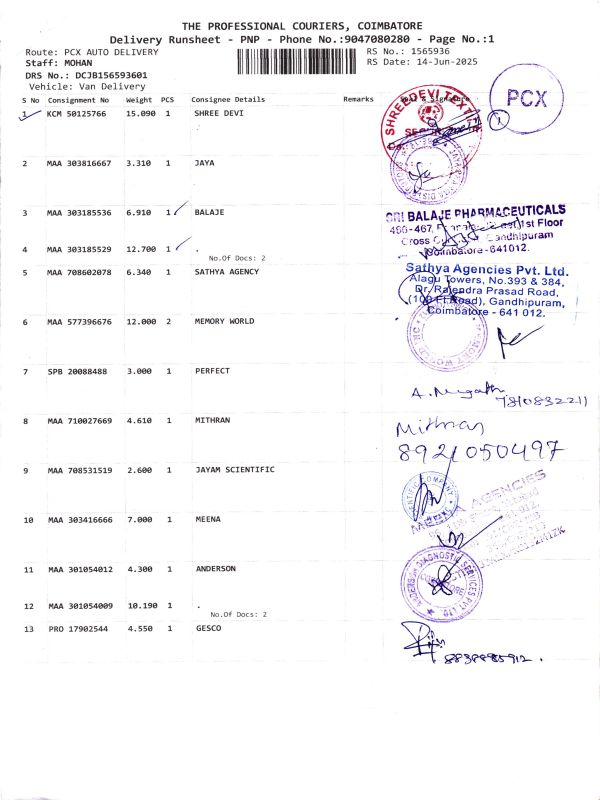 THE PROFESSIONAL COURIERS, COIMBATORE
Delivery Runsheet - PNP - Phone No.:9047080280 - Page No.:1
Route: PCX AUTO DELIVERY
RS No.: 1565936
Staff: MOHAN
RS Date: 14-Jun-2025
DRS No.: DCJB156593601
Vehicle: Van Delivery
PCX
S No Consignment No Weight PCS Consignee Details Remarks Seal & Signature
1 KCM 50125766 15.090 1 SHREE DEVI
SHREE DEVI TEXT
1
2 MAA 303816667 3.310 1 JAYA
3 MAA 303185536 6.910 1 BALAJE
SRI BALAJE PHARMACEUTICALS
486-467, 1st Floor
Cross Gandhipuram
Coimbatore-641012.
4 MAA 303185529 12.700 1 .
No.Of Docs: 2
5 MAA 708602078 6.340 1 SATHYA AGENCY
Sathya Agencies Pvt. Ltd.
Alagu Towers, No.393 & 384,
Dr. Rajendra Prasad Road,
(100 Ft Road), Gandhipuram,
Coimbatore - 641 012.
6 MAA 577396676 12.000 2 MEMORY WORLD
7 SPB 20088488 3.000 1 PERFECT
7810832211
8 MAA 710027669 4.610 1 MITHRAN
Mithran
8921050497
9 MAA 708531519 2.600 1 JAYAM SCIENTIFIC
AGENCIES
10 MAA 303416666 7.000 1 MEENA
11 MAA 301054012 4.300 1 ANDERSON
ANDERSON DIAGNOSTIC SERVICES PVT LTD
COIMBATORE
12 MAA 301054009 10.190 1 .
No.Of Docs: 2
13 PRO 17902544 4.550 1 GESCO